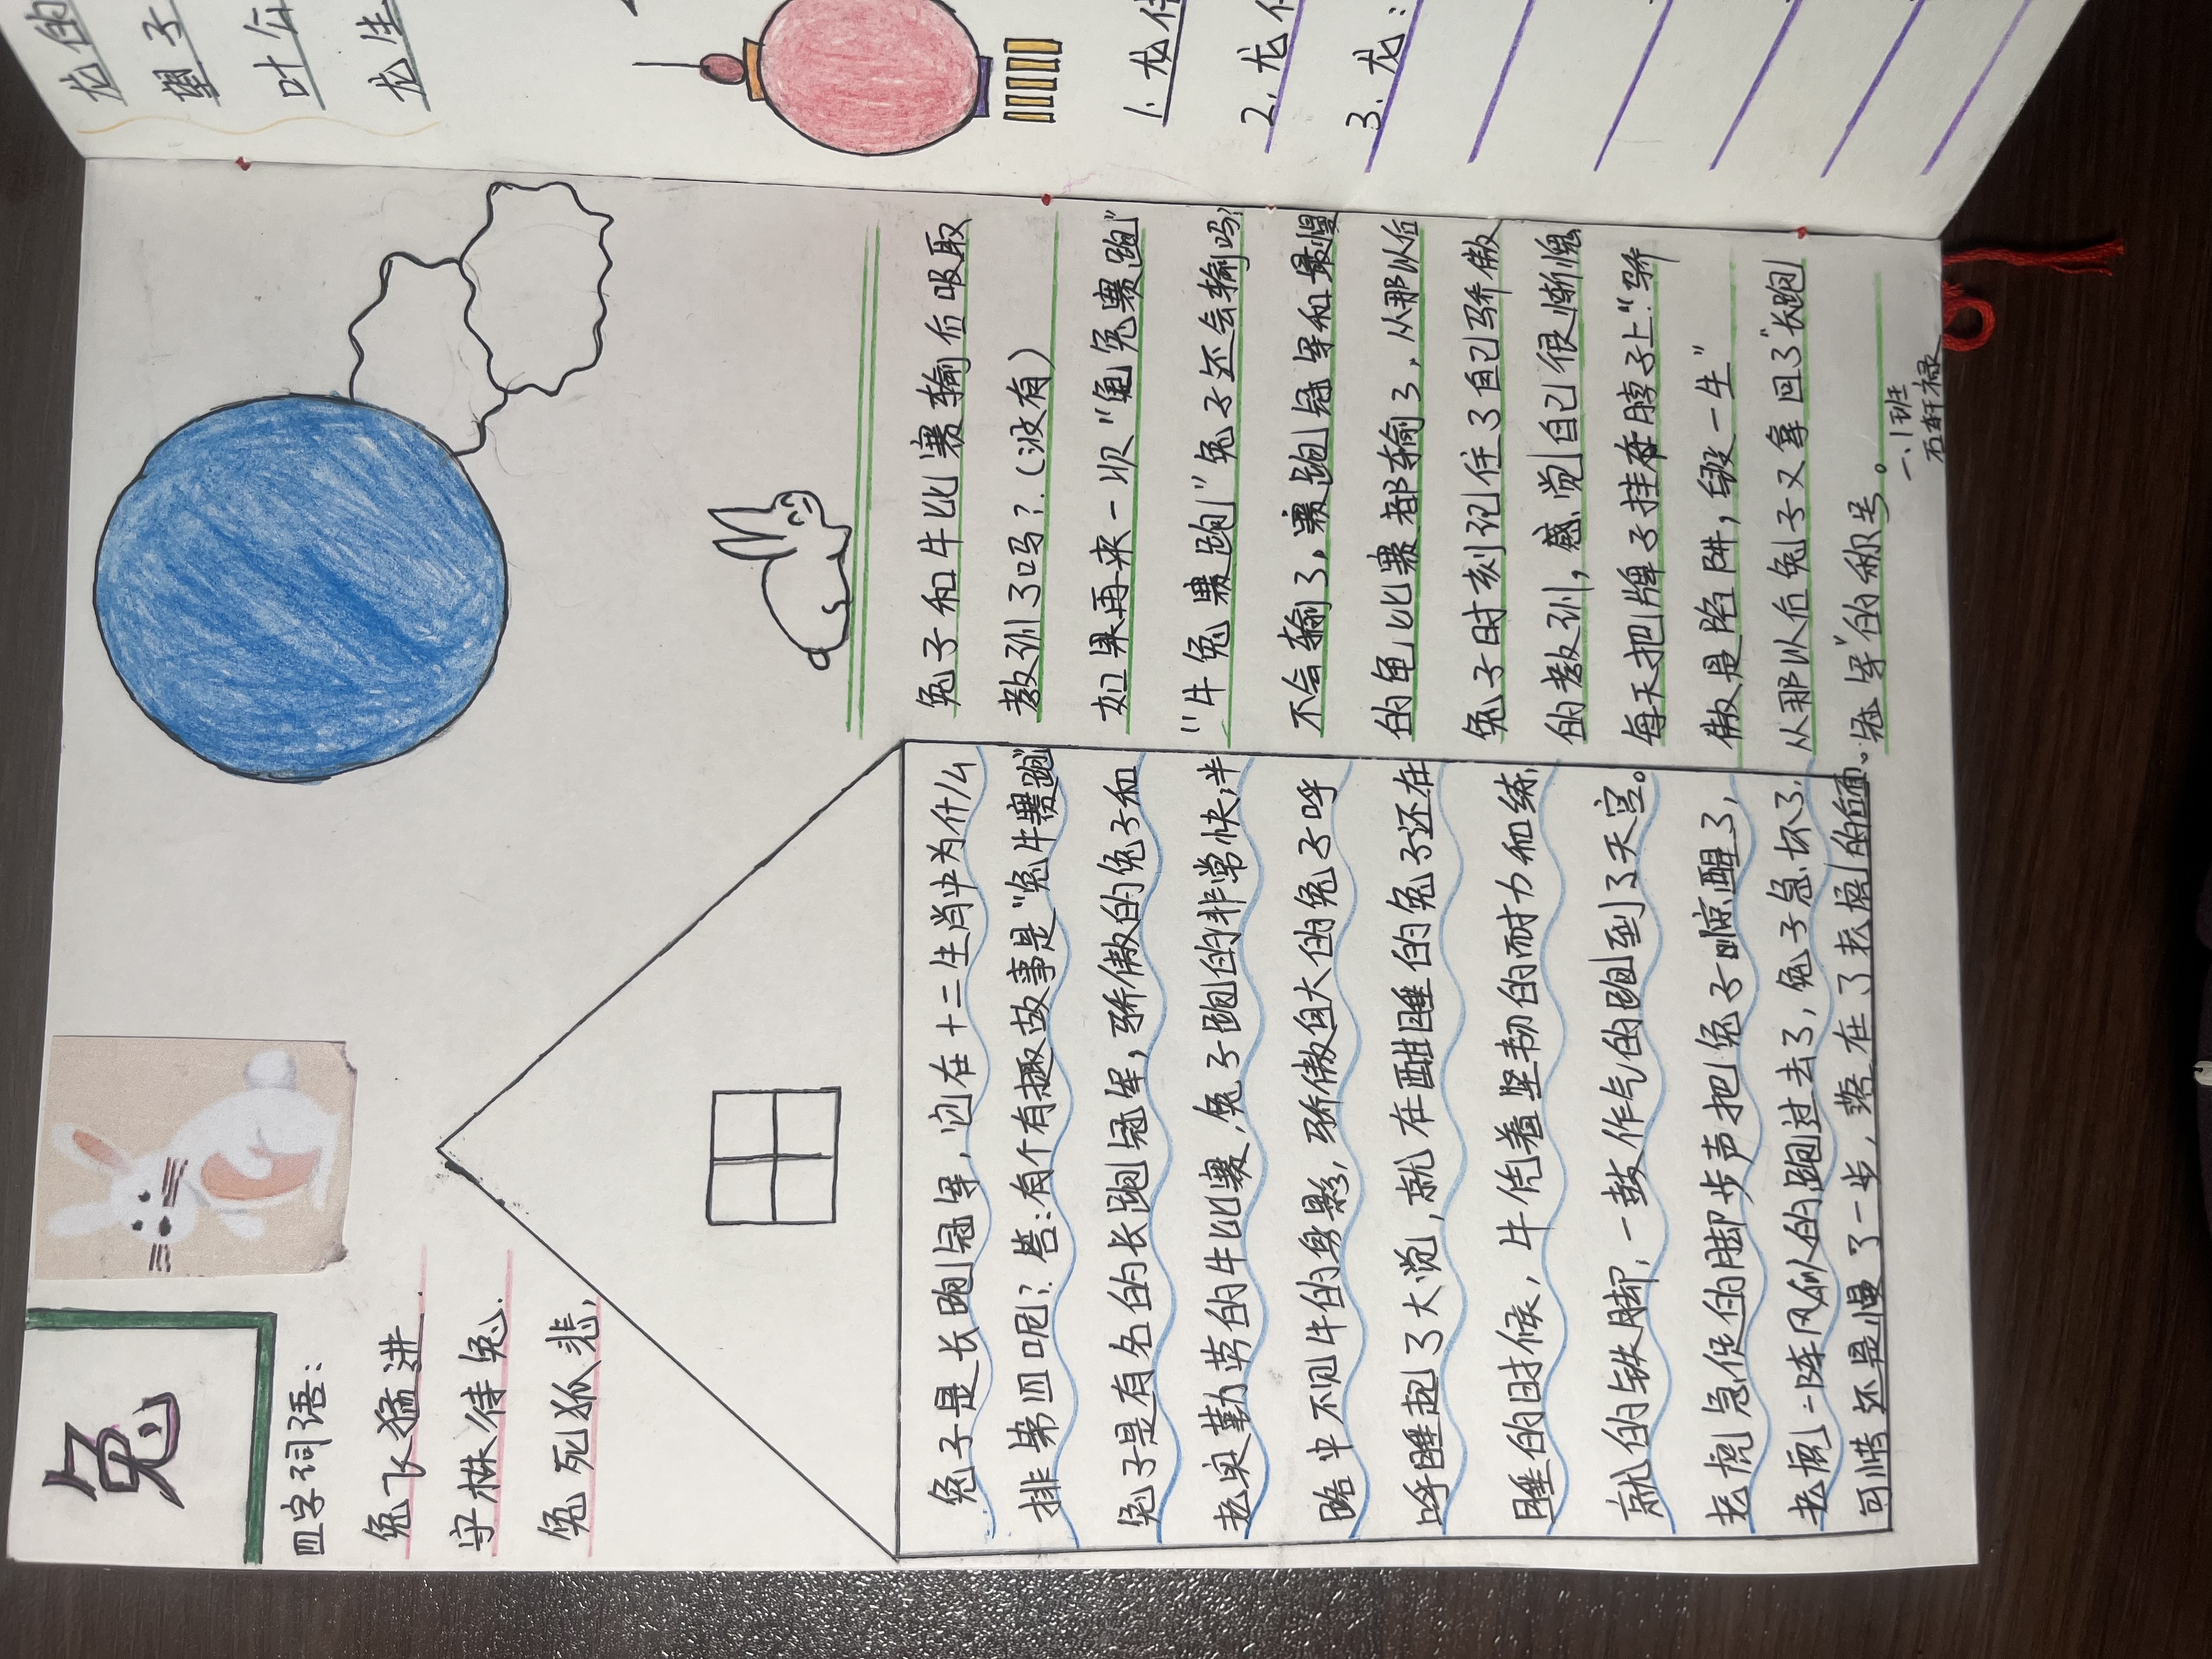 兔
四字词语：
兔飞猛进.
守株待兔.
兔死狐悲,
兔子是长跑冠军，它在十二生肖中为什么
排第四呢？答：有个有趣故事是“兔牛赛跑”
兔子是有名的长跑冠军，骄傲的兔子和
老实勤劳的牛比赛，兔子跑的非常快，半
路中不见牛的身影，骄傲自大的兔子呼
呼睡起了大觉，就在酣睡的兔子还在
睡的时候，牛凭着坚韧的耐力和练
就的铁脚，一鼓作气的跑到了天宫。
老虎急促的脚步声把兔子惊醒了，
老虎一阵风似的跑过去了，兔子急坏了，
可惜还是慢了一步，落在了老虎的后面。
兔子和牛比赛输后吸取
教训了吗？（没有）
如果再来一次“龟兔赛跑”
“牛兔赛跑”兔子还会输吗？
不会输了，赛跑冠军和最慢
的龟比赛都输了，从那以后
兔子时刻记住了自己骄傲
的教训，感觉自己很惭愧
每天把牌子挂在脖子上“骄
傲是陷阱，毁一生”
从那以后兔子又拿回了“长跑
冠军”的称号。
一、1班
石轩禄
龙的
叶公
龙生
1. 龙
2. 龙
3. 龙：